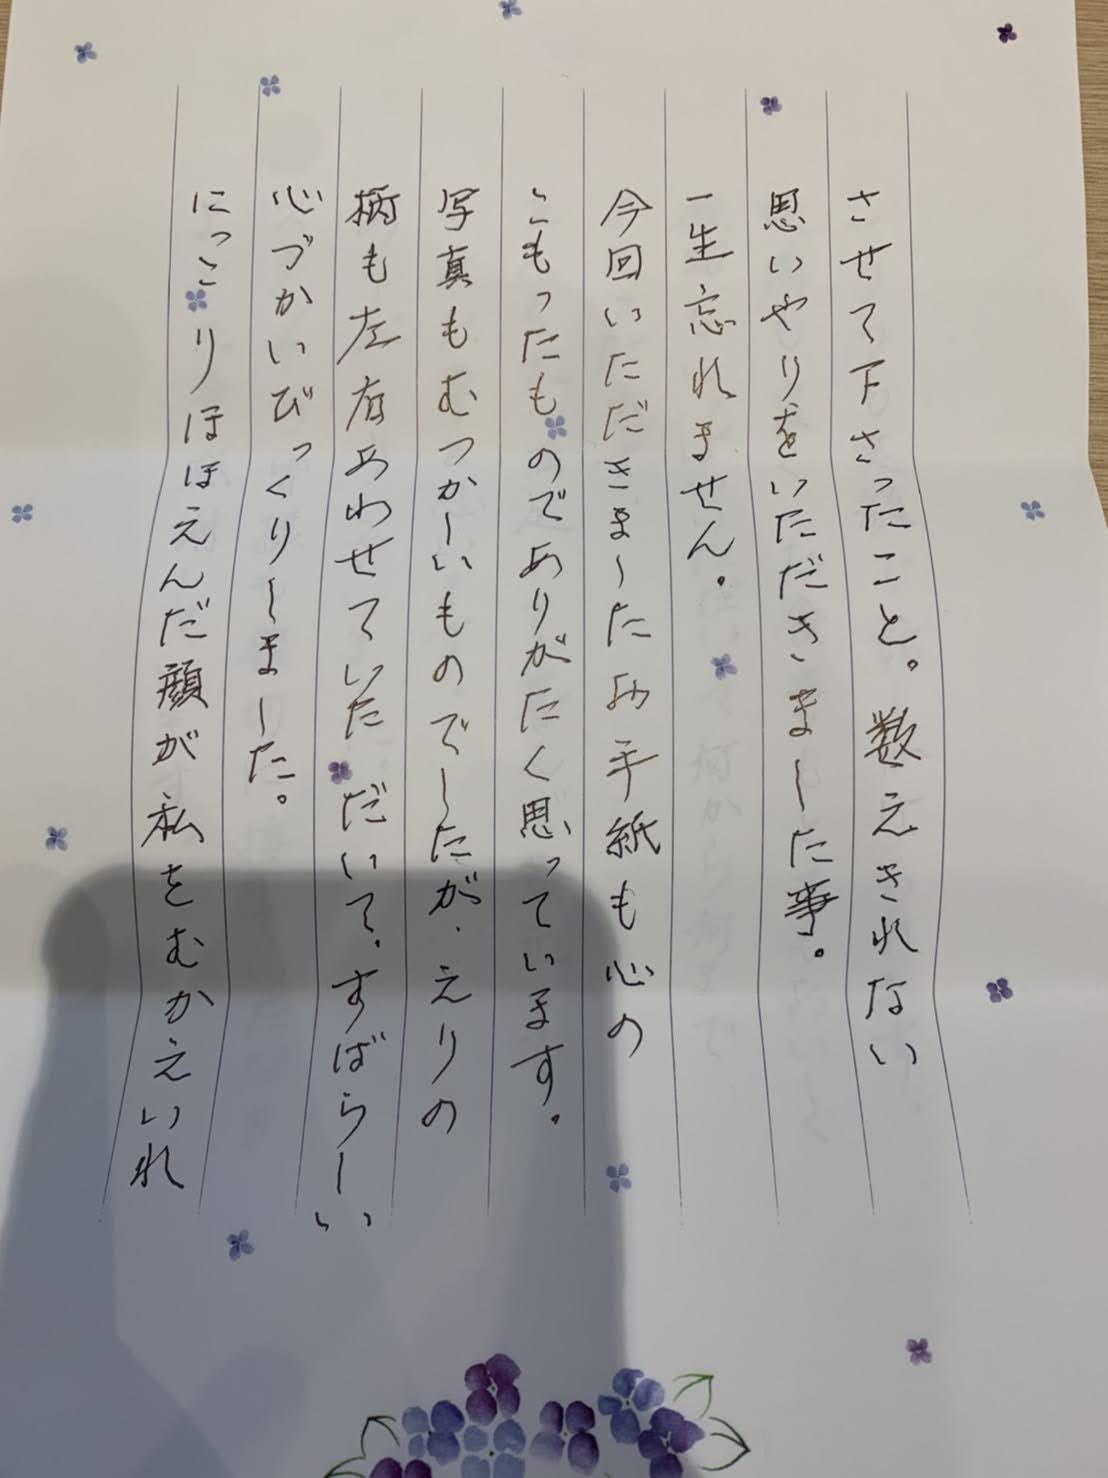 させて下さったこと。数えきれない
思いやりをいただきました事。
一生忘れません。
今回いただきましたお手紙も心の
こもったものでありがたく思っています。
写真もむつかしいものでしたが、えりの
柄も左右あわせていただいて、すばらしい
心づかいびっくりしました。
にっこりほほえんだ顔が私をむかえいれ